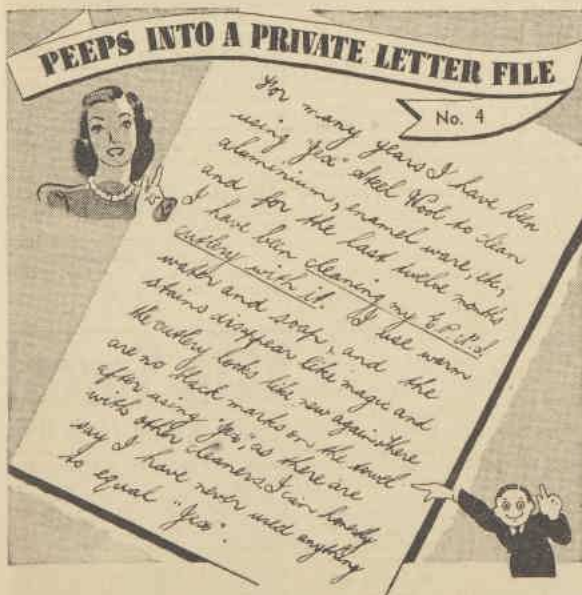 PEEPS INTO A PRIVATE LETTER FILE
No. 4
For many years I have been
using "Jex" Steel Wool to clean
aluminium, enamel ware, etc,
and for the last twelve months
I have been cleaning my E.P.N.S.
cutlery with it. I use warm
water and soap, and the
stains disappear like magic and
the cutlery looks like new again. There
are no black marks on the towel
after using "Jex", as there are
with other cleaners. I can honestly
say I have never used anything
to equal "Jex".